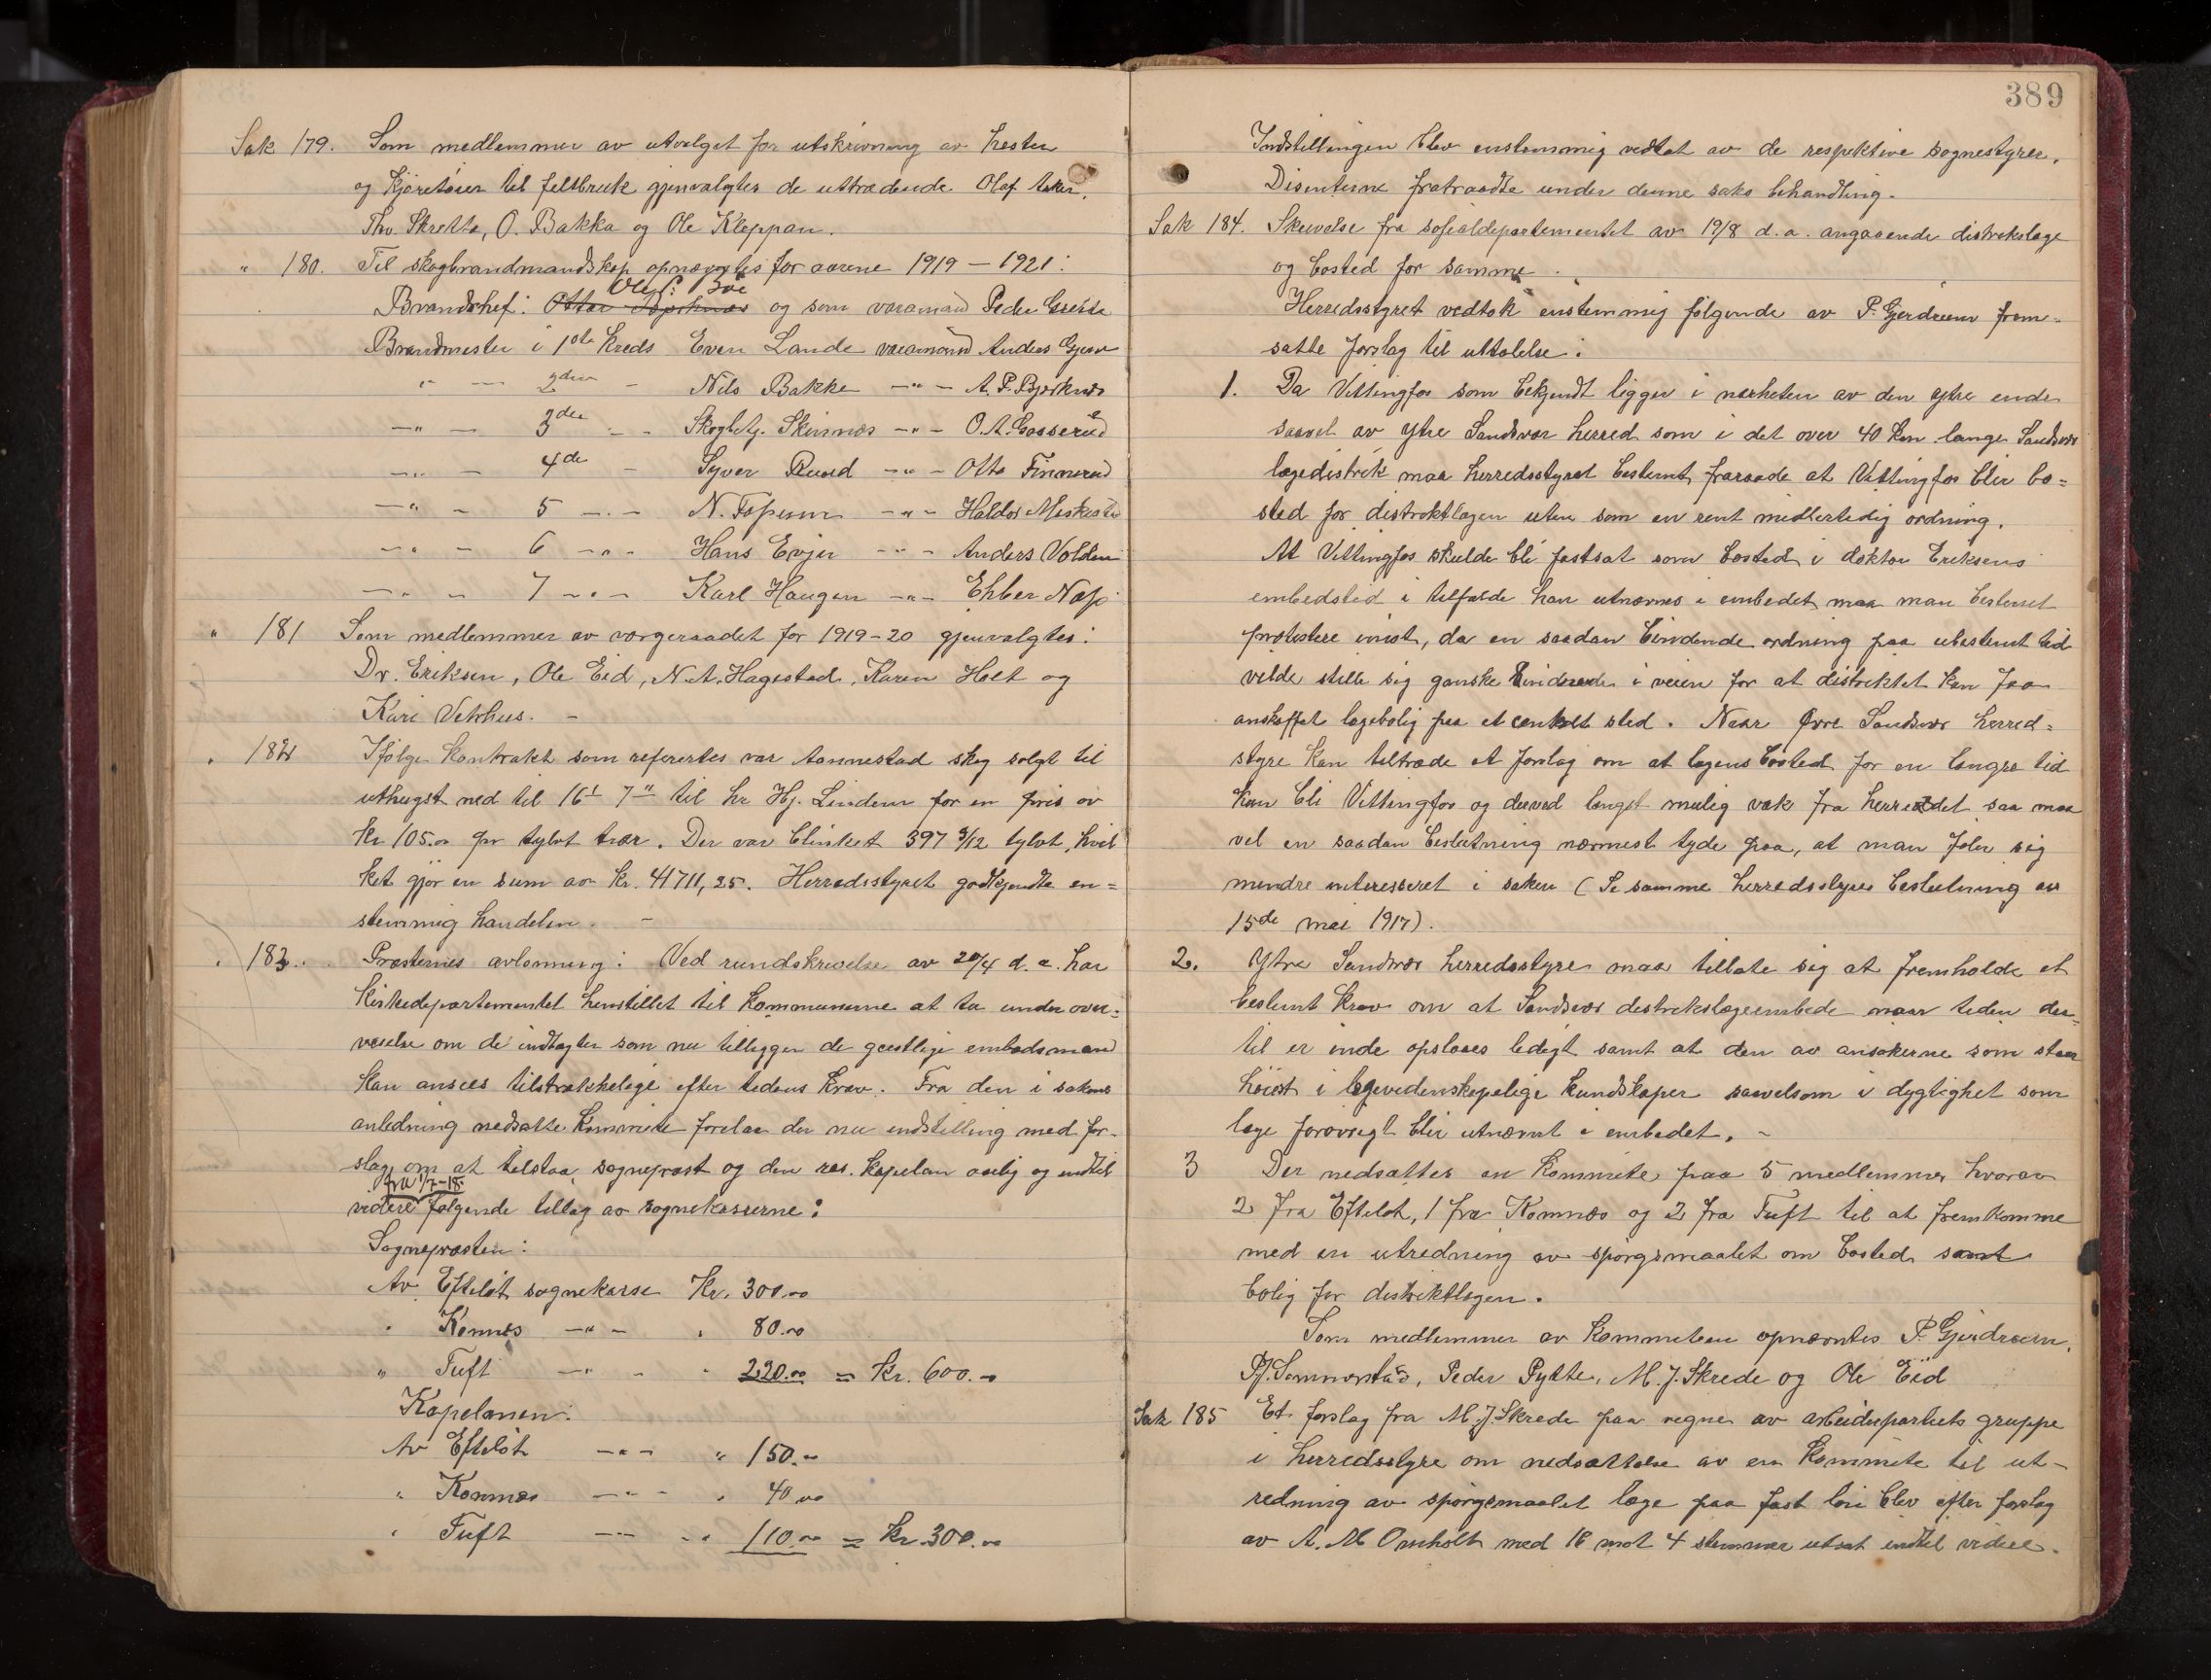 Sak 179. Som medlemmer av utvalget for utskrivning av hester
og kjøretøier til feltbruk gjenvalgtes de uttrædende Olaf Aaker,
Thv. Skrette, O. Bakka og Ole Kleppan.
" 180. Til skogbrandmandskap opnævntes for aarene 1919 – 1921:
Ole P. Boe
Brandchef: Ottar og som varamand Peder
Brandmester i 1ste kreds Even Lande varamand Anders
" — 2den - Nils Bakke -"- A. P. Bjerknæs
-"- — 3die - - Skogbetj. Skinnæs -"- O. A. Gosserud
-"- — 4de - Syver Ruud -"- Otto Finnerud
-"- - 5 -"- N. Fossum -"- Haldor
-"- - 6 -"- Hans Evju -"- Anders Volden
-"- - 7 -"- Karl Haugen -"- Ehber Næss
" 181 Som medlemmer av værgeraadet for 1919-20 gjenvalgtes:
Dr. Eriksen, Ole Eid, N. A. Hagestad, Karen Holt og
Kari Vetrhus. –
" 182 Ifølge kontrakt som refertes var Aannestad skog solgt til
uthugst ned til 16' 7" til hr Hj. Lindem for en pris av
Kr 105.00 pr tylvt trær. Der var blinket 397 3/12 tylvt, hvil
ket gjør en sum av kr. 41711,25. Herredsstyret godkjendte en=
stemmig handelen. –
" 183. Præsternes avlønning: Ved rundskrivelse av 20/4 d.a. har
Kirkedepartementet henstillet til kommunerne at ta under over=
veielse om de indtægter som nu tilligger de geistlige embedsmænd
kan ansees tilstrækkelige efter tidens krav. Fra den i sakens
anledning nedsatte komite forelaa der nu indstilling med for-
slag om at tilstaa sogneprest og den res. kapelan aarlig og indtil
fra 1/7-18
videre følgende tillæg av sognekasserne:
Sognepræsten:
Av Efteløt sognekasse Kr. 300.00
" Komnes -"- " 80.00
" Tuft -"- " 220.00 = Kr. 600.-
Kapelanen:
Av Efteløt -"- " 150.-
" Komnæs -"- " 40.00
" Tuft -"- " 110.00 = Kr. 300.00
389
Indstillingen blev enstemmig vedtat av de respektive sognestyrer.
Disenterne fratraadte under denne saks behandling.
Sak 184. Skrivelse fra sosialdepartementet av 19/8 d.a. angaaende distrikslæge
og bosted for samme.
Herredsstyret vedtok enstemmig følgende av P. Gjerdrum frem-
satte forslag til uttalelse:
1. Da Vittingfos som bekjendt ligger i nærheten av den ytre ende
saavel av ytre Sandsvær herred som i det over 40 km lange Sandsvær
lægedistrik maa herredsstyret bestemt fraraade at Vittingfos blir bo=
sted for distriktlægen uten som en rent midlertidig ordning.
At Vittingfos skulde bli fastsat som bosted i doktor Eriksens
embedstid i tilfælde han utnævnes i embedet maa man bestemt
protestere imot, da en saadan bindende ordning paa ubestemt tid
vilde stille sig ganske hindrende i veien for at distriktet kan faa
anskaffet lægebolig paa et centralt sted. Naar Øvre Sandsvær herred=
styre kan tiltræde et forslag om at lægens bosted for en længre tid
kan bli Vittingfos og derved længst mulig væk fra herredet saa maa
vel en saadan beslutning nærmest tyde paa, at man føler sig
mindre interesseret i saken (Se samme herredsstyres beslutning av
15de mai 1917).
2. Ytre Sandsvær herredsstyre maa tillate sig at fremholde et
bestemt krav om at Sandsvær distrikslægeembede naar tiden der=
til er inde opslaaes ledigt samt at den av ansøkerne som staar
høiest i lægevidenskapelige kundskaper saavelsom i dygtighet som
læge forøvrigt blir utnævnt i embedet. –
3 Der nedsættes en komite paa 5 medlemmer hvorav
2 fra Efteløt, 1 fra Komnæs og 2 fra Tuft til at fremkomme
med en utredning av spørgsmaalet om bosted samt
bolig for distriktlægen.
Som medlemmer av komiteen opnævntes P. Gjerdrum,
P. J. Sommerstad, Peder Pytte, M. J. Skrede og Ole Eid
Sak 185 Et forslag fra M. J. Skrede paa vegne av arbeiderpartiets gruppe
i herredsstyre om nedsættelse av en komite til ut-
redning av spørgsmaalet læge paa fast løn blev efter forslag
av A. M. Omholt med 18 mot 4 stemmer utsat indtil videre.